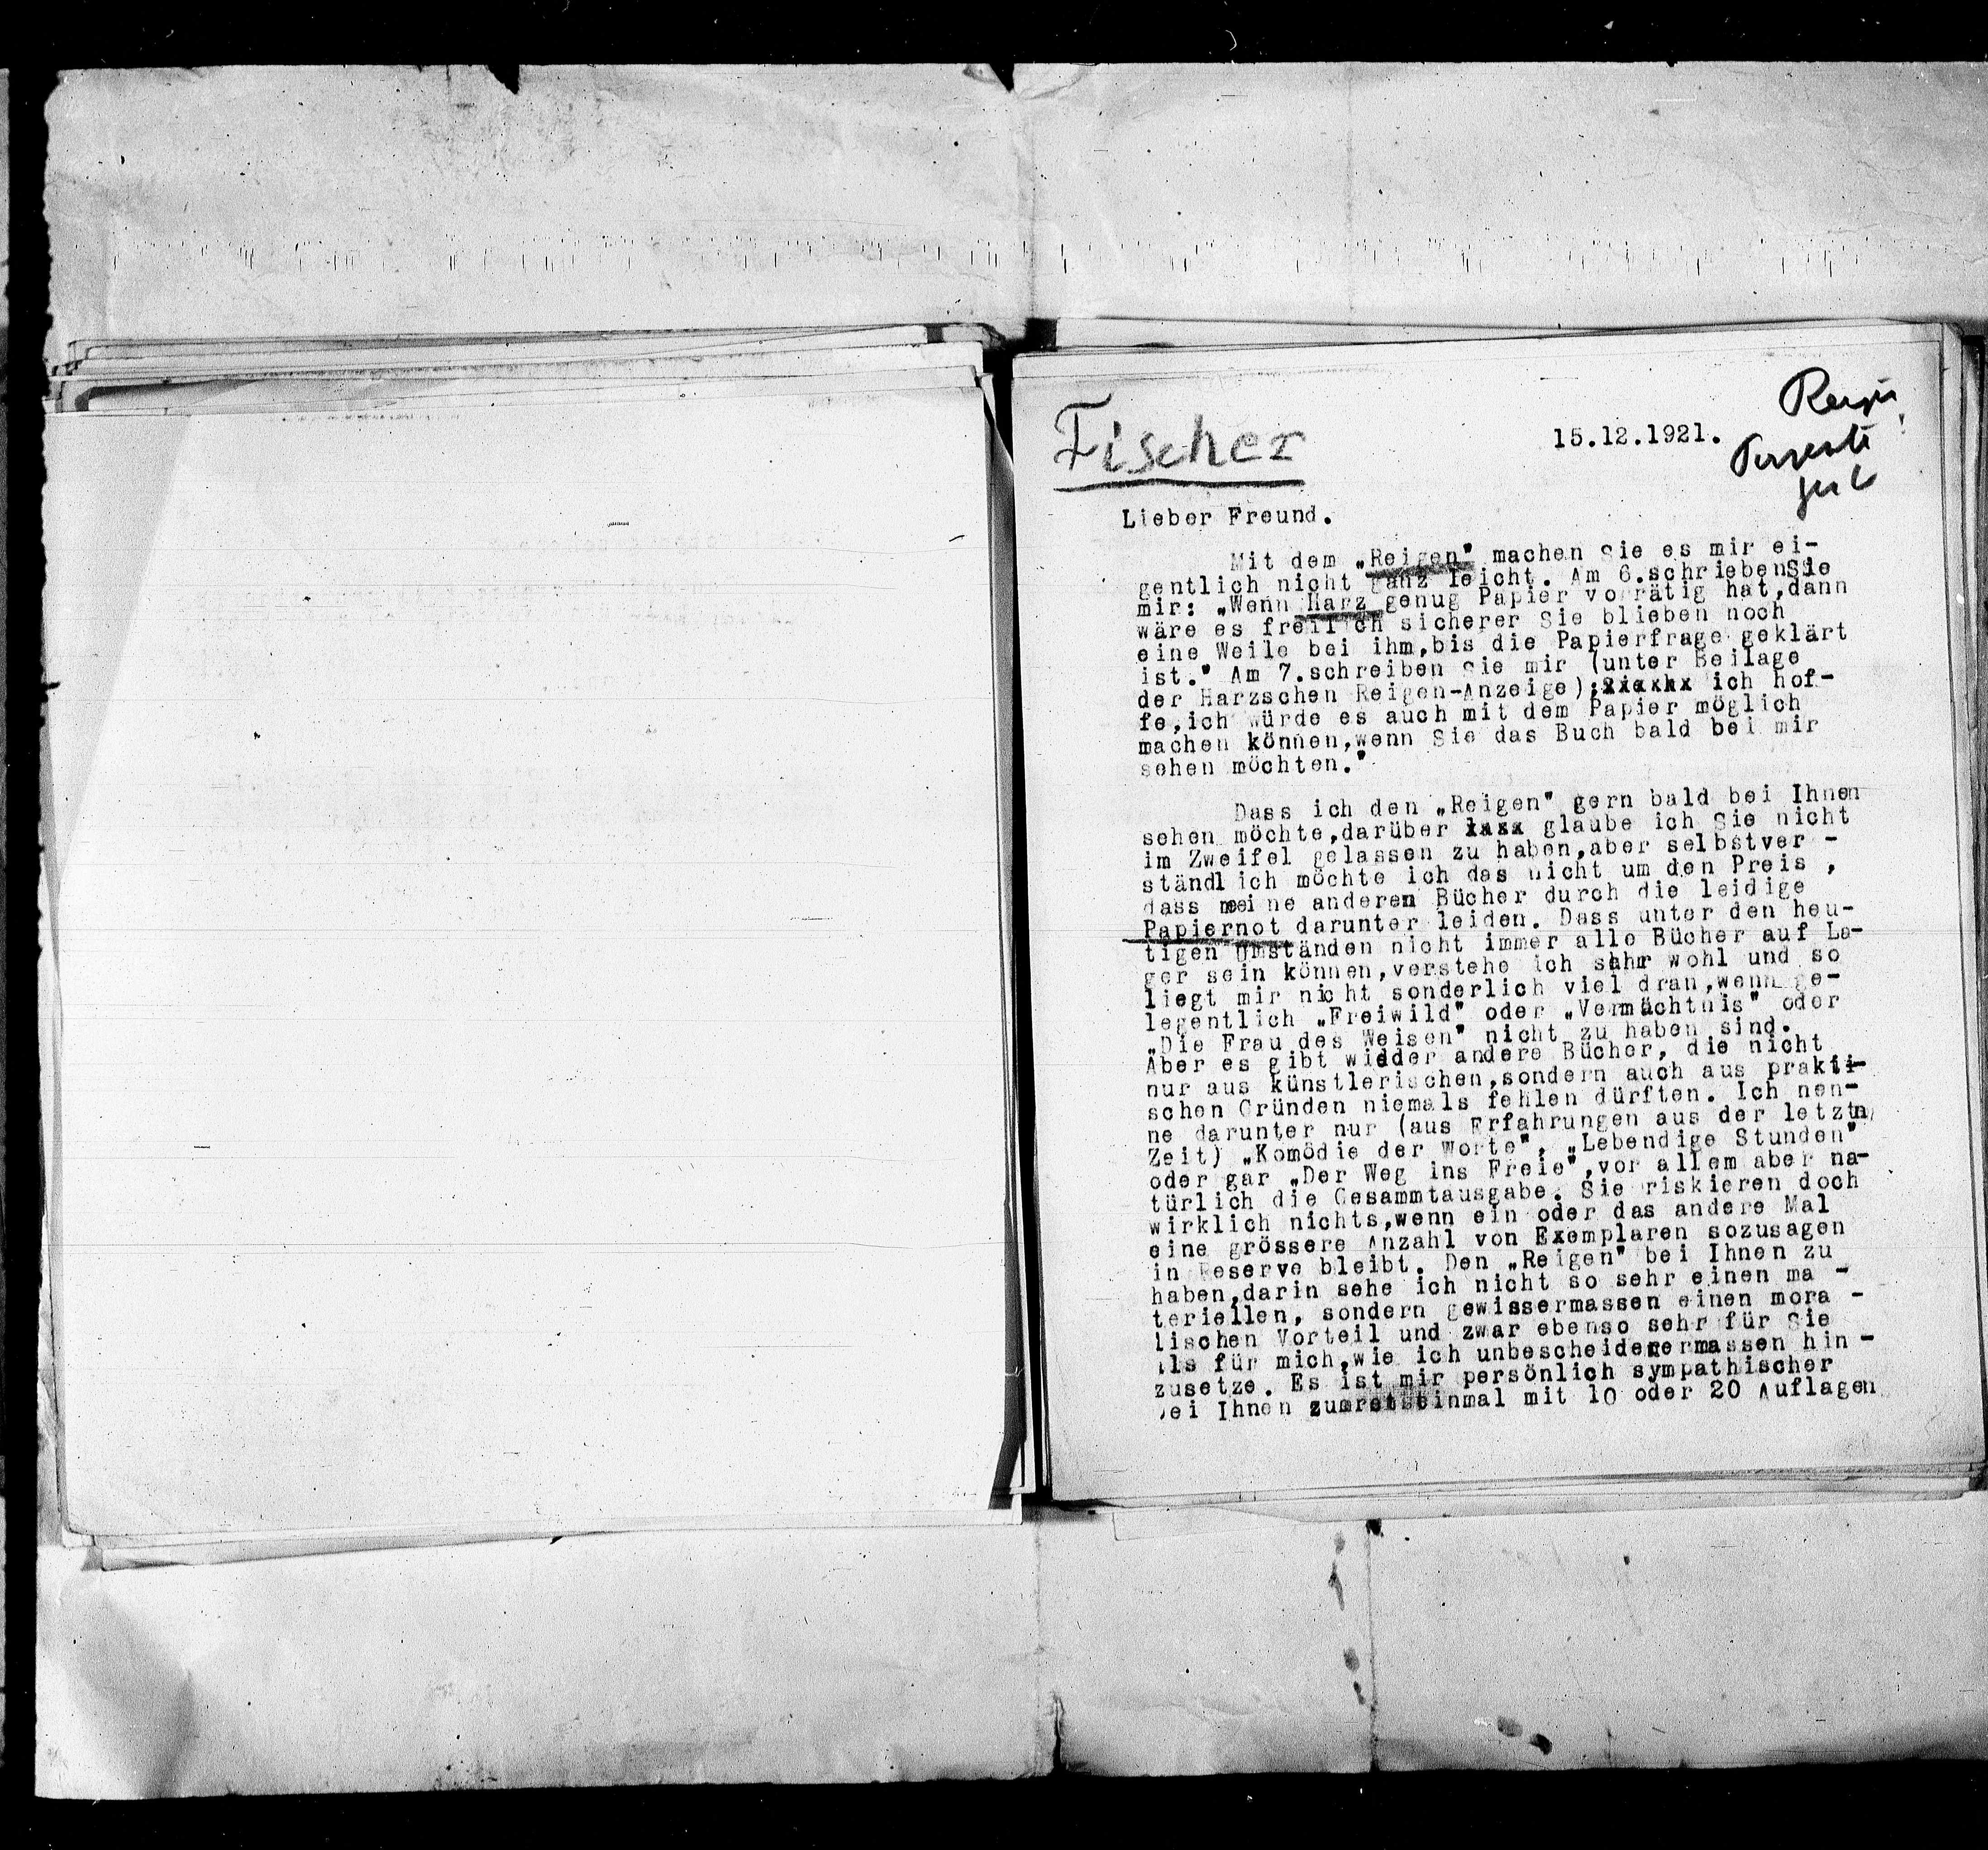 Fischer
15.12.1921.
Lieber Freund.
Mit dem „Reigen" machen Sie es mir ei-
gentlich nicht ganz leicht. Am 6.schriebenSie
mir: „Wenn Harz genug Papier vorrätig hat,dann
wäre es freilich sicherer Sie blieben noch
eine Weile bei ihm,bis die Papierfrage geklärt
ist." Am 7.schreiben Sie mir (unter Beilage
der Harzschen Reigen-Anzeige): ich hof-
fe,ich würde es auch mit dem Papier möglich
machen können,wenn Sie das Buch bald bei mir
sehen möchten."
Dass ich den „Reigen" gern bald bei Ihnen
sehen möchte,darüber glaube ich Sie nicht
im Zweifel gelassen zu haben,aber selbstver -
ständlich möchte ich das nicht um den Preis ,
dass meine anderen Bücher durch die leidige
Papiernot darunter leiden. Dass unter den heu-
tigen Umständen nicht immer alle Bücher auf La-
ger sein können,verstehe ich sehr wohl und so
liegt mir nicht sonderlich viel dran,wenn ge-
legentlich „Freiwild" oder „Vermächtnis" oder
„Die Frau des Weisen" nicht zu haben sind.
Aber es gibt wieder andere Bücher, die nicht
nur aus künstlerischen,sondern auch aus prakti-
schen Gründen niemals fehlen dürften. Ich nen-
ne darunter nur (aus Erfahrungen aus der letztn
Zeit) „Komödie der Worte", „Lebendige Stunden"
oder gar „Der Weg ins Freie",vor allem aber na-
türlich die Gesammtausgabe. Sie riskieren doch
wirklich nichts,wenn ein oder das andere Mal
eine grössere Anzahl von Exemplaren sozusagen
in Reserve bleibt. Den „Reigen" bei Ihnen zu
haben,darin sehe ich nicht so sehr einen ma -
teriellen, sondern gewissermassen einen mora -
lischen Vorteil und zwar ebenso sehr für Sie
als für mich,wie ich unbescheidenermassen hin -
zusetze. Es ist mir persönlich sympathischer
bei Ihnen einmal mit 10 oder 20 Auflagen